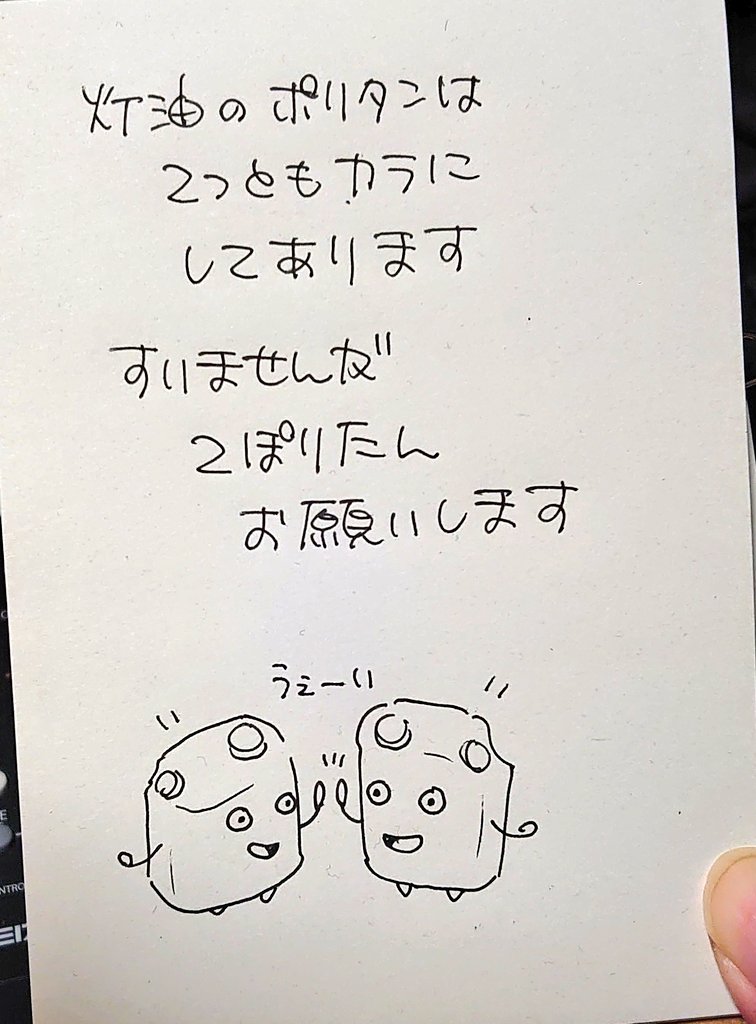 灯油のポリタンは
2っともカラに
してあります
すいませんが
2ぽりたん
お願いします
うぇーい